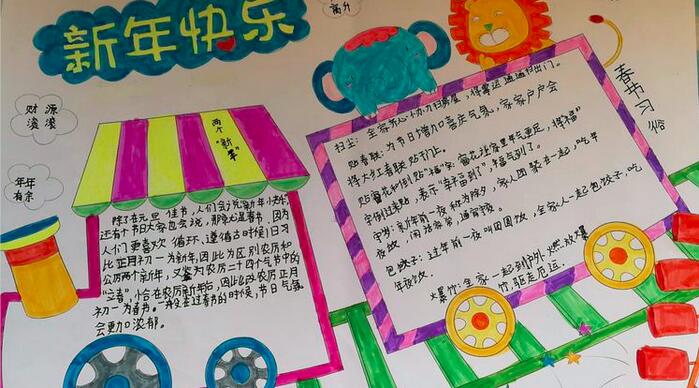 新年快乐
高升
财源
滚滚
年年
有余
两个
“新年”
除了在元旦佳节,人们会说新年快乐,
还有个节日大家也会说,那就是春节,因为
人们更喜欢循环,遵循古时候)日习
比正月初一为新年,因此为区别农历和
公历两个新年,又鉴为农历二十四个气节中的
“立春”,恰在农历新年后,因此改农历正月
初一为春节。一般去过春节的时候,节日气氛
会更加浓郁。
春节习俗
扫尘:全家齐心协力扫房屋,得霉运通通扫出门。
贴春联:为节日增加喜庆气氛,家家户户会
得大红春联贴门上。
贴窗花和倒贴“福”家,窗花让家里年气更足,得“福”
字倒过来贴,表示“幸福到了”,福气到了。
守岁:新年前一夜称为除夕,家人团聚在一起,吃年
夜饭,闲话家常,通宵守夜。
包饺子:过年前一夜叫团圆饭,全家人一起包饺子,吃
年夜饭。
爆竹:全家一起到户外,燃放爆
竹,驱走厄运.